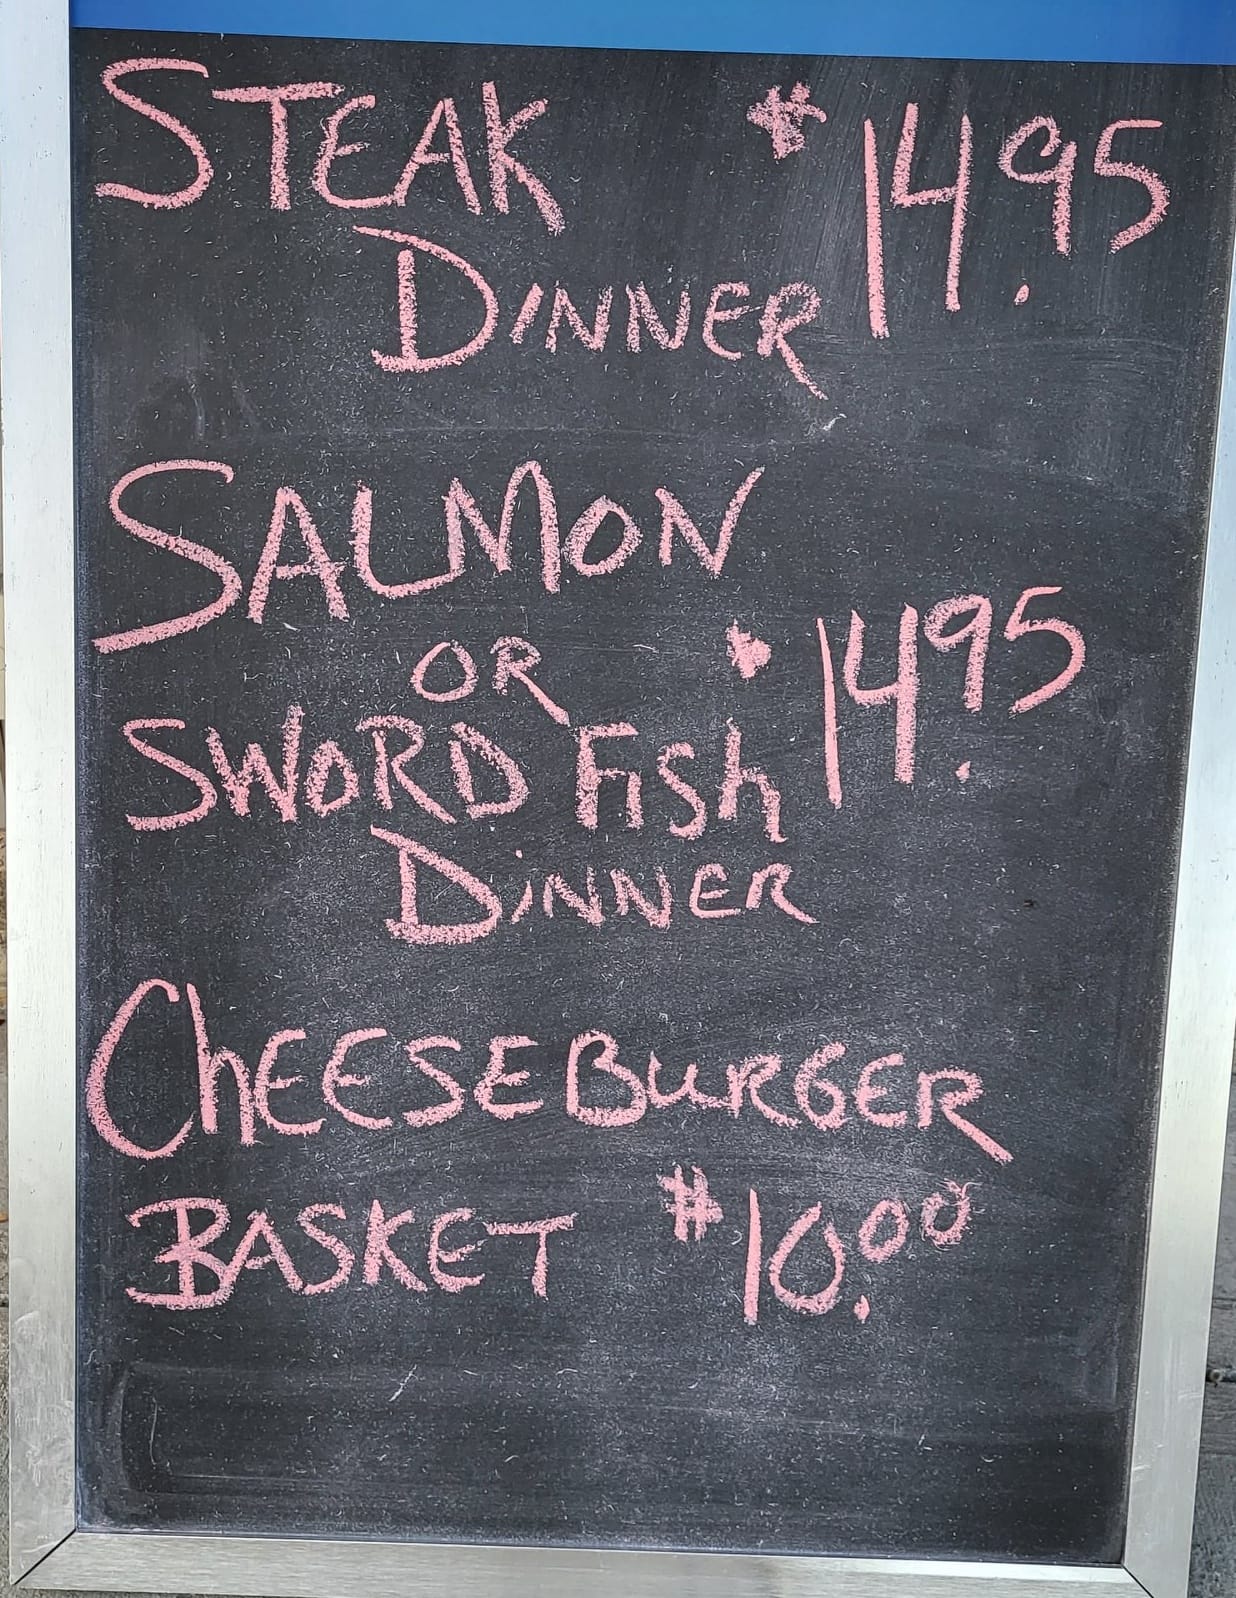 STEAK $14.95
DINNER
SALMON
OR $14.95
SWORD Fish
DiNNER
ChEESE BURGER
BASKET $10.00